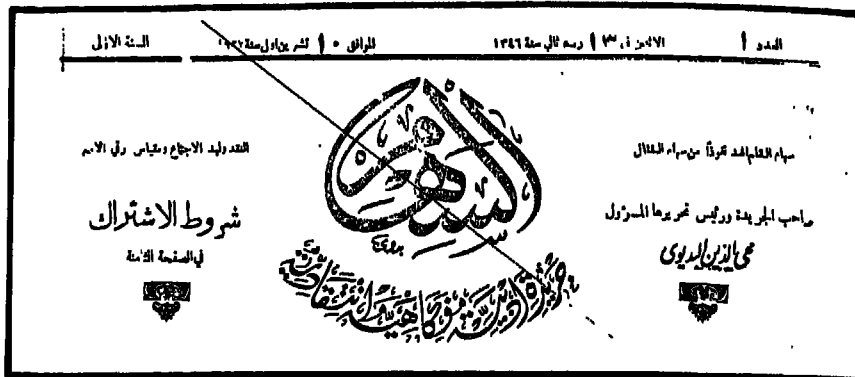 العدد ١
الاثنين في ١٣ ربيع ثاني سنة ١٣٤٦
الموافق ١٠ تشرين اول سنة ١٩٢٧
السنة الاولى
سهام القلم اشد نفوذاً من سهام القتال
صاحب الجريدة ورئيس تحريرها المسؤول
محي الدين البديوي
السهم
جريدة ادبية فكاهية انتقادية
النقد وليد الاجتماع ومقياس رقي الامم
شروط الاشتراك
في الصفحة الثامنة